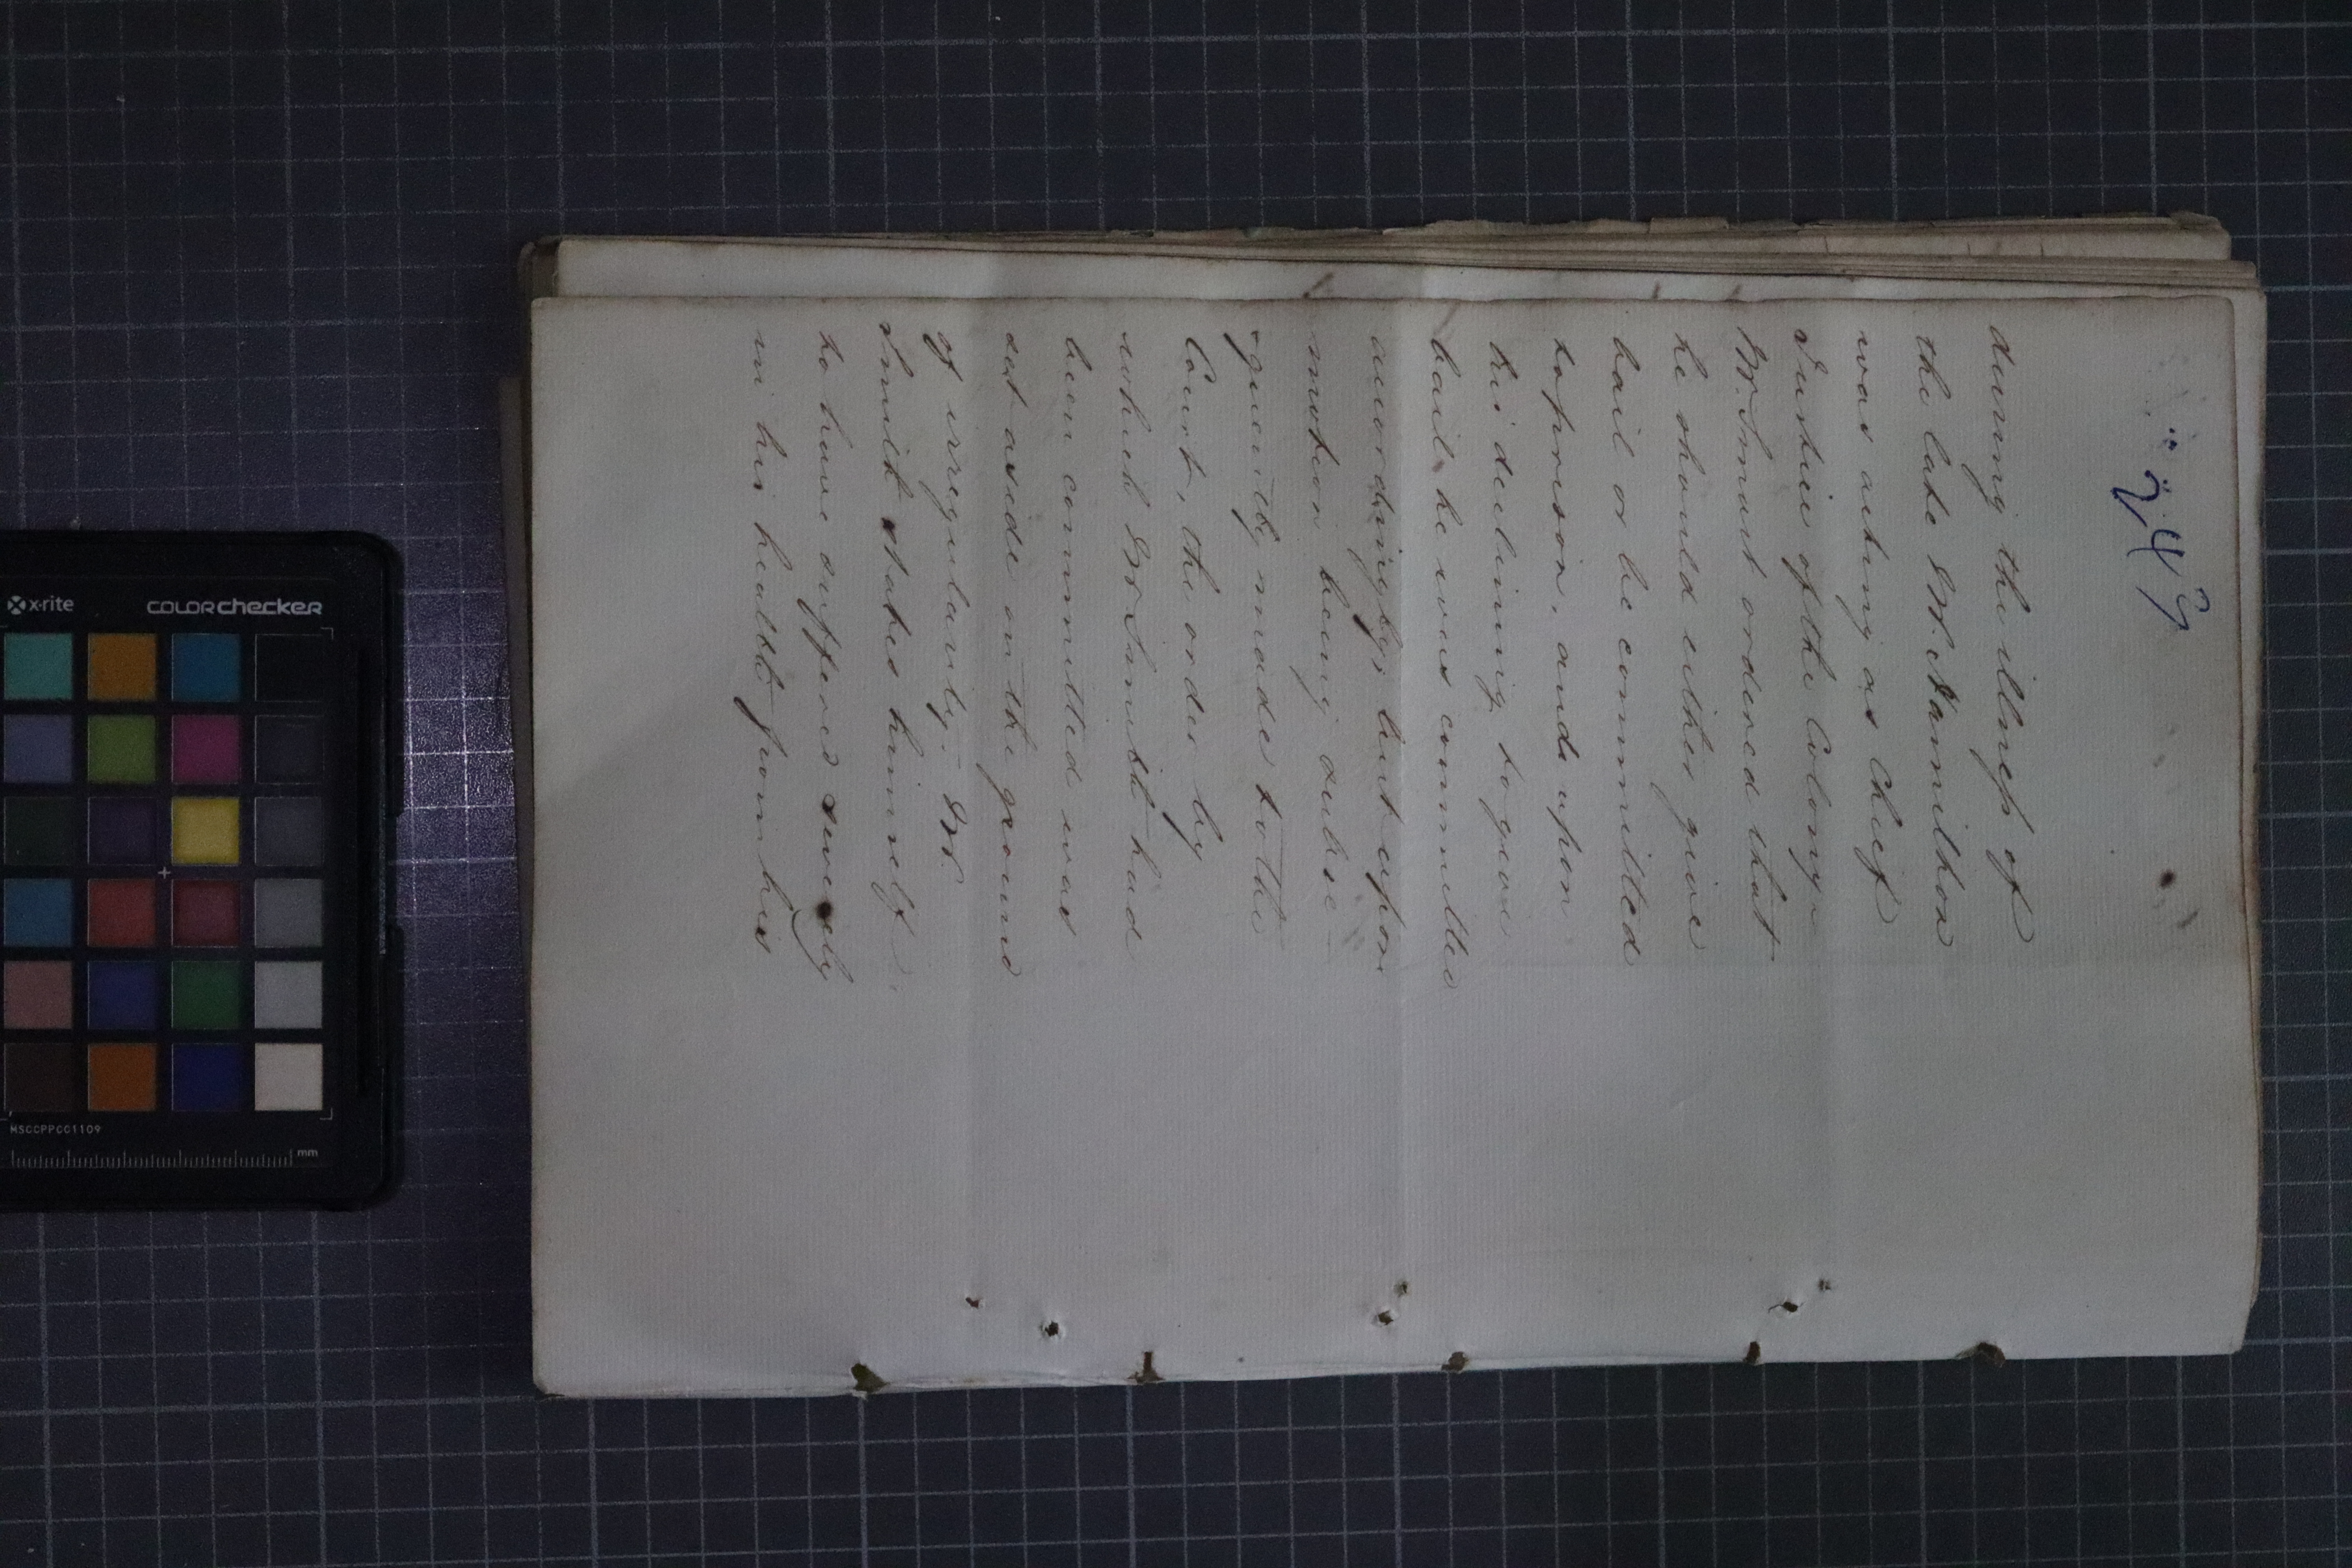 249
during the illness of
the late Mr. Hamilton
was acting as Chief
Justice of the Colony
Mr. Smart ordered that
he should either give
bail or be committed
to prison, and upon
his declining to give
bail, he was committed
accordingly; but upon
motion being subse-
quently made to the
Court, the order by
which Mr Smith had
been committed was
set aside on the ground
of irregularity. Mr.
Smith states himself
to have suffered severely
in his health from his
x-rite
COLORchecker
MSCCPPCC1109
mm